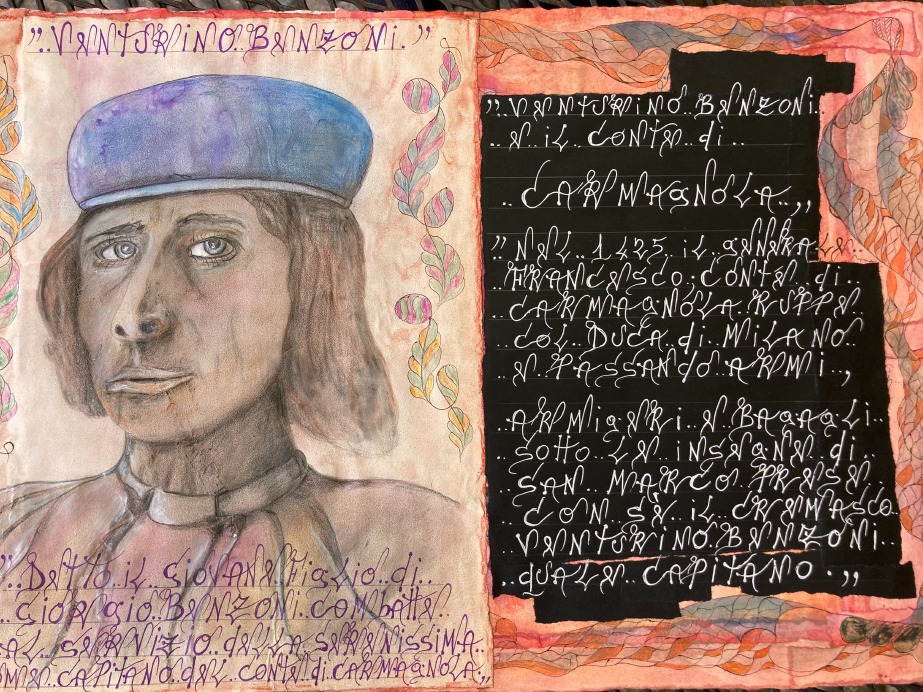 „..VENTURINO..BENZONI.”
„..Detto..il..giovane..figlio..di..
..Giorgio..Benzoni..combatte..
AL..SERVIZIO..della..SERENISSIMA..
COME..CAPITANO..del..CONTE..di..CARMAGNOLA,,
„..VENTURINO..BENZONI..
..e..il..CONTE..di..
..CARMAGNOLA..,,
„..NEL..1425..il..GENERALE..
..FRANCESCO;CONTE..di..
..CARMAGNOLA..RUPPE..
..COL..DUCA..di..MILANO..
..e..PASSANDO..ARMI..,
..ARMIGERI..e..BAGAGLI..
..sotto..LE..INSEGNE..di..
..SAN..MARCO..PRESE..
..CON..SE..IL..CREMASCO..
..VENTURINO..BENZONI..
..quale..CAPITANO.,,